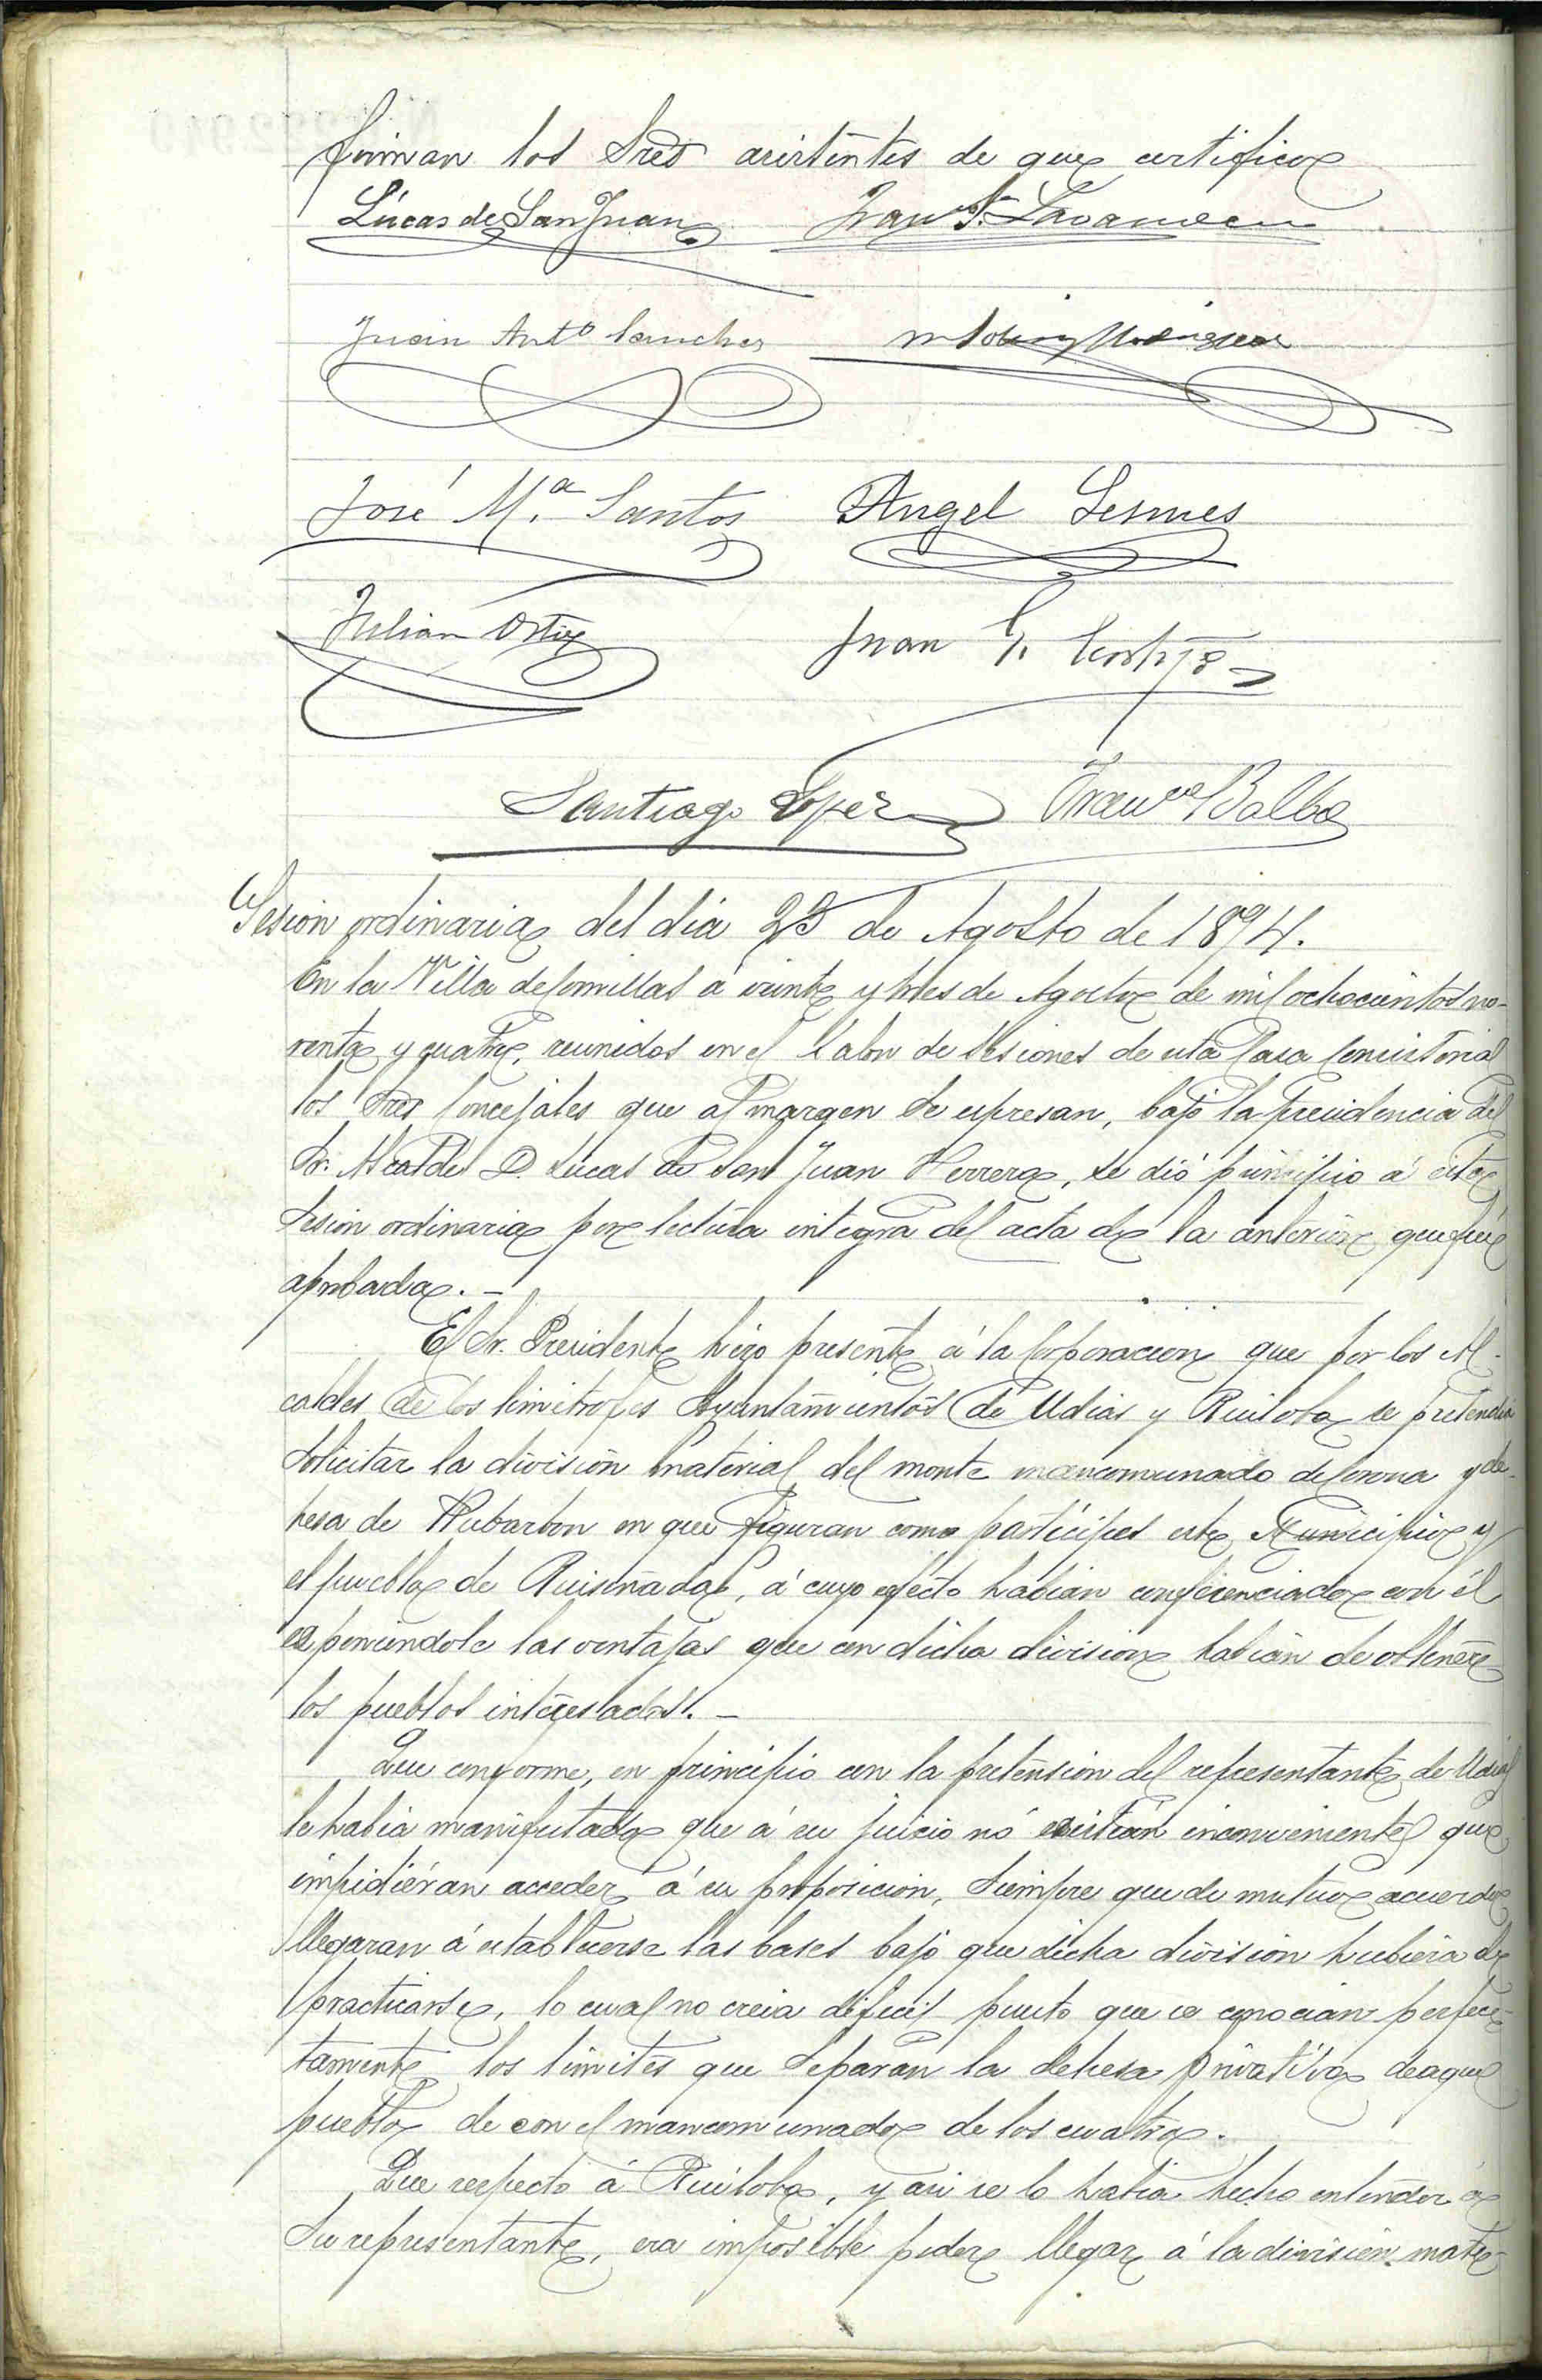 firman los Sres asistentes de que certifico
Lúcas de San Juan Franco S. Lavandera
Juan Anto Sanchez
José M.a Santos Angel Lesmes
Julian Ortiz Juan G.
Santiago Lopez Franco Balbo
Sesion ordinaria del dia 23 de Agosto de 1894.
En la Villa de Comillas á veinte y tres de Agosto de mil ochocientos no-
venta y cuatro, reunidos en el Salon de Sesiones de esta Casa Consistorial
los Sres Concejales que al margen se espresan, bajo la presidencia del
Sr. Alcalde D. Lucas de San Juan Herrera, se dió principio á esta
Sesion ordinaria por lectura integra del acta de la anterior que fué
aprobada. —
El Sr. Presidente hizo presente á la Corporacion que por los Al-
caldes de los limitrofes Ayuntamientos de Udias y Ruiloba se pretendia
Solicitar la división material del monte mancomunado de Corona y de-
hesa de Rubarbon en que figuran como participes este Municipio y
el pueblo de Ruiseñada, á cuyo efecto habian conferenciado con él
esponiendole las ventajas que con dicha division habian de obtener
los pueblos interesados. —
Que conforme, en principio con la pretension del representante de Udias
le habia manifestado que á su juicio nó existian inconvenientes que
impidiéran acceder á su proposicion, Siempre que de mutuo acuerdo
llegaran á establecerse las bases bajo que dicha división hubiera de
practicarse, lo cual no creia dificil puesto que se conocian perfec-
tamente los limites que Separan la dehesa privativa de aquel
pueblo de con el mancomunado de los cuatro.
Que respecto á Ruiloba, y asi se lo habia hecho entender á
Su representante, era imposible poder llegar á la division mate-